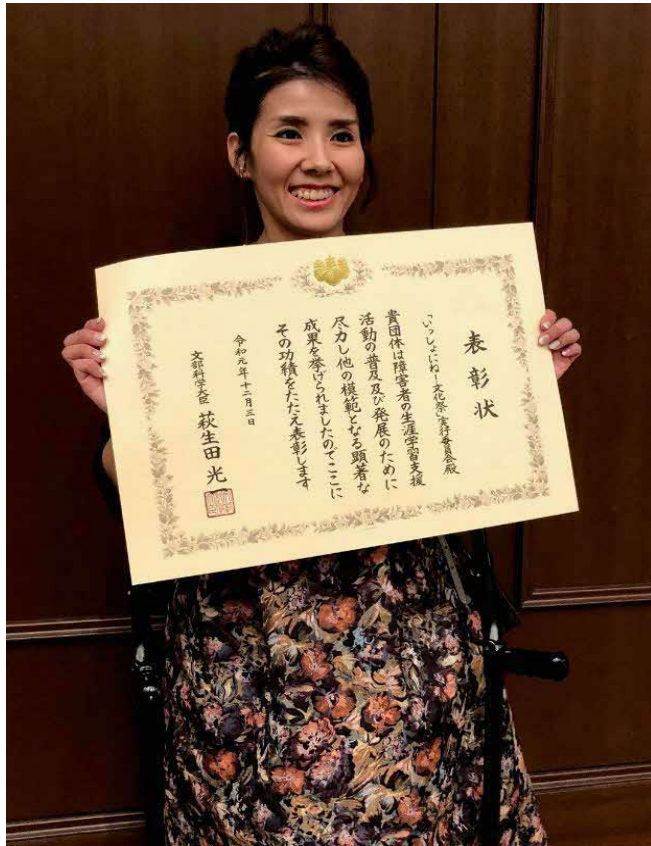 表彰状
「いっしょにねー文化祭」実行委員会殿
貴団体は障害者の生涯学習支援
活動の普及及び発展のために
尽力し他の模範となる顕著な
成果を挙げられましたのでここに
その功績をたたえ表彰します
令和元年十二月三日
文部科学大臣 萩生田光一